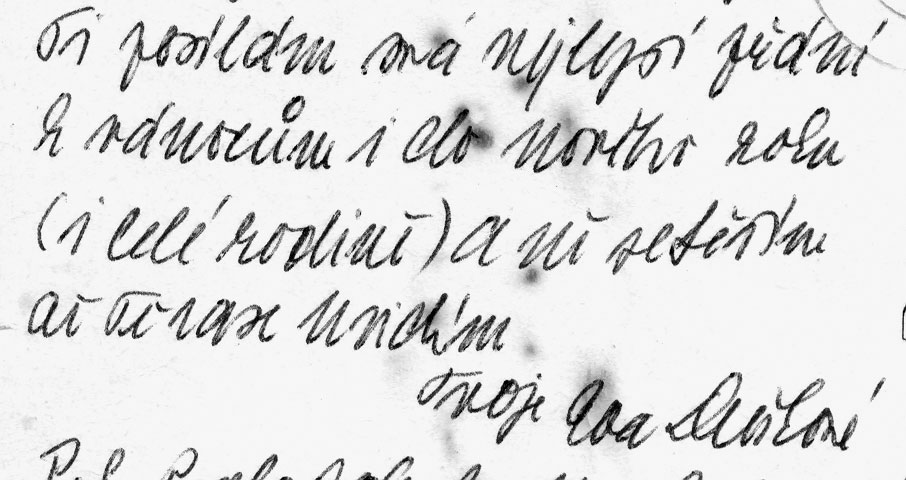 Ti posílám svá nejlepší přání
k vánocům i do nového roku
(i celé rodině) a už se těším
až Tě zase uvidím
Tvoje Eva
P.S.